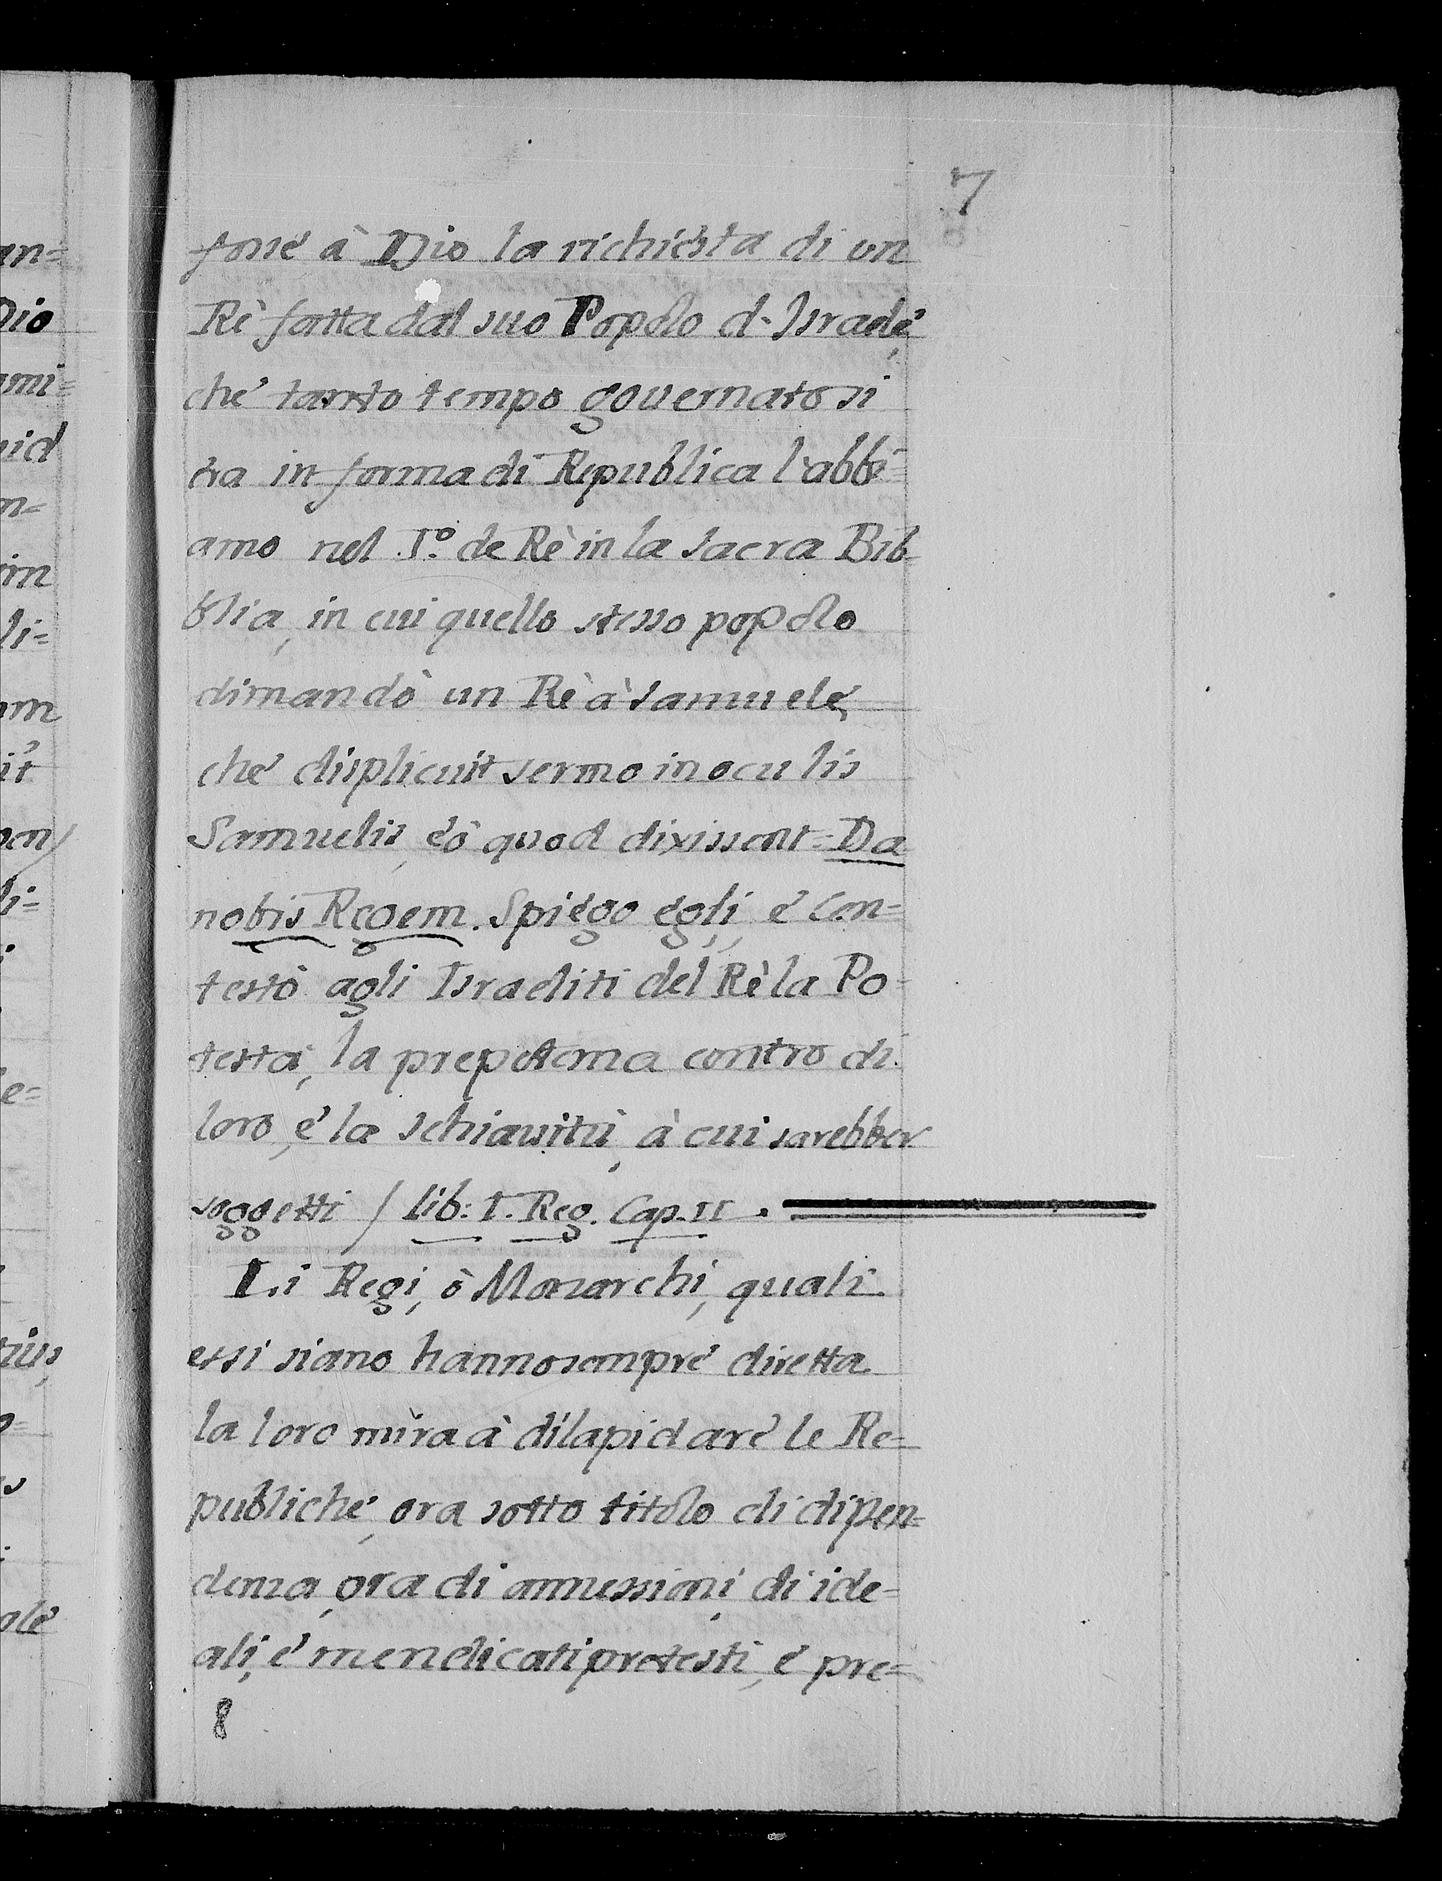 7
fosse à Dio la richiesta di un
Rè fatta dal suo Popolo d'Israele,
che tanto tempo governato si
era in forma di Republica l'abbi-
amo nel I.º de Rè in la Sacra Bib-
blia, in cui quello stesso popolo
dimandò un Rè à Samuele,
che displicuit sermo in oculis
Samuelis, eò quod dixissent = Da
nobis Regem. Spiegò egli, e con=
testò agli Israeliti del Rè la Po-
testà, la prepotenza contro di
loro, e la schiavitù, à cui sarebber
soggetti / lib: I. Reg. Cap. II.
Li Regi, ò Monarchi, quali
essi siano hanno sempre diretta
la loro mira à dilapidare le Re-
publiche, ora sotto titolo di dipen=
denza, ora di annessioni, di ide=
ali, e mendicati pretesti, e pre=
8